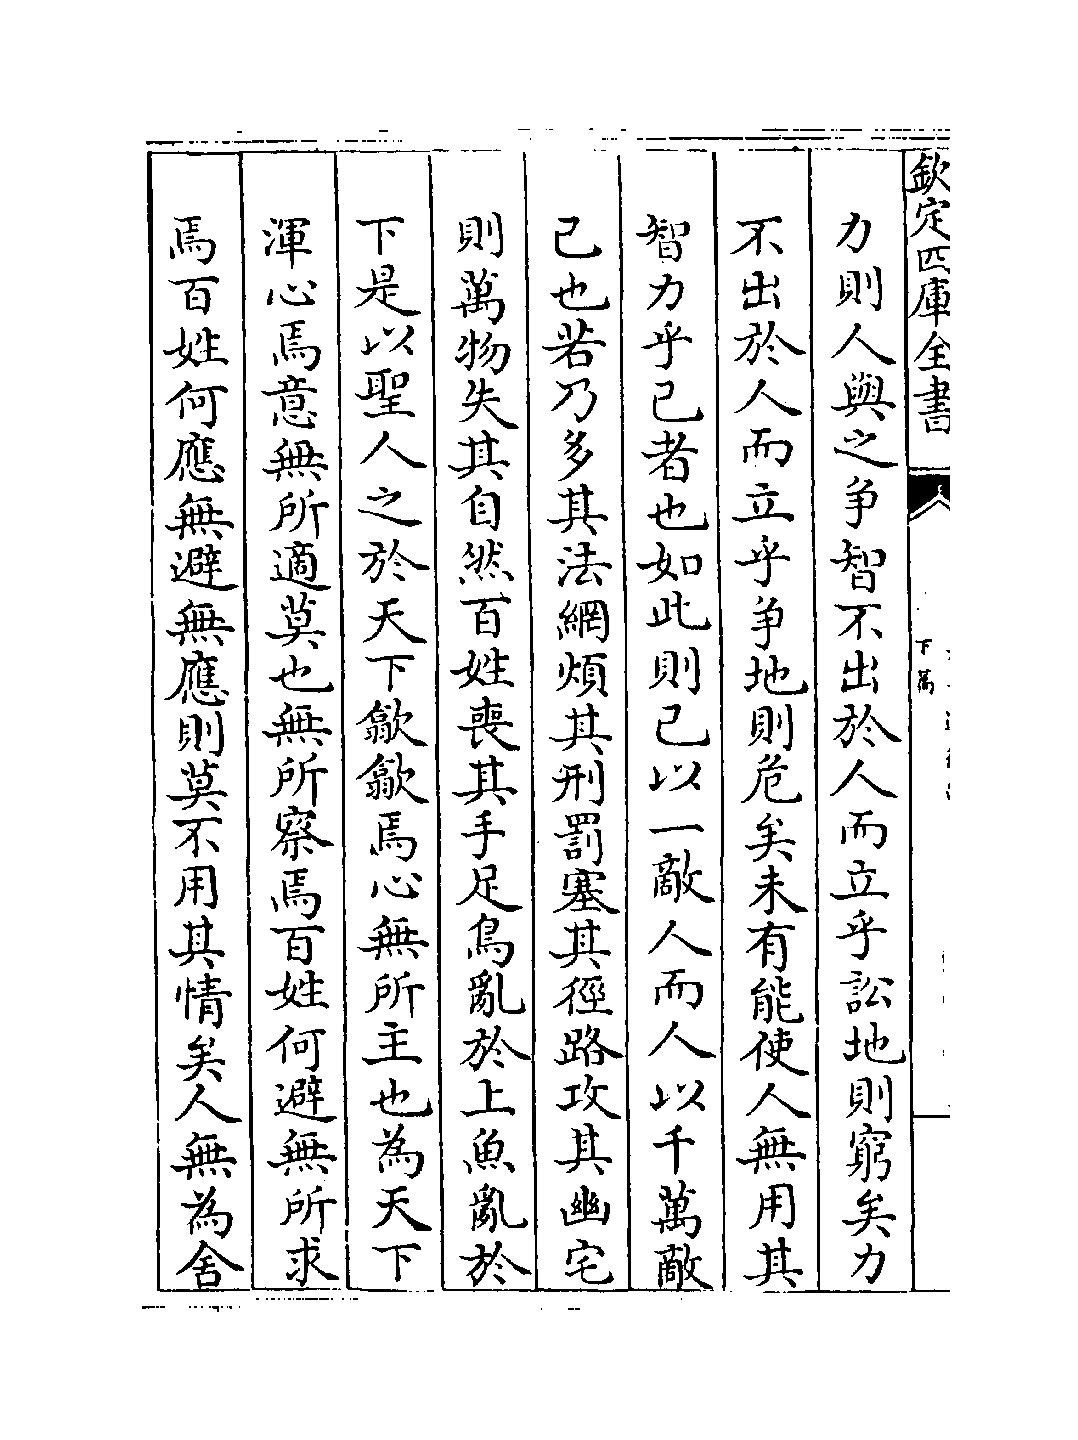 欽定四庫全書
下篇
力則人與之争智不出於人而立乎訟地則窮矣力
不出於人而立乎争地則危矣未有能使人無用其
智力乎己者也如此則己以一敵人而人以千萬敵
己也若乃多其法網煩其刑罰塞其徑路攻其幽宅
則萬物失其自然百姓喪其手足鳥亂於上魚亂於
下是以聖人之於天下歙歙焉心無所主也為天下
渾心焉意無所適莫也無所察焉百姓何避無所求
焉百姓何應無避無應則莫不用其情矣人無為舍